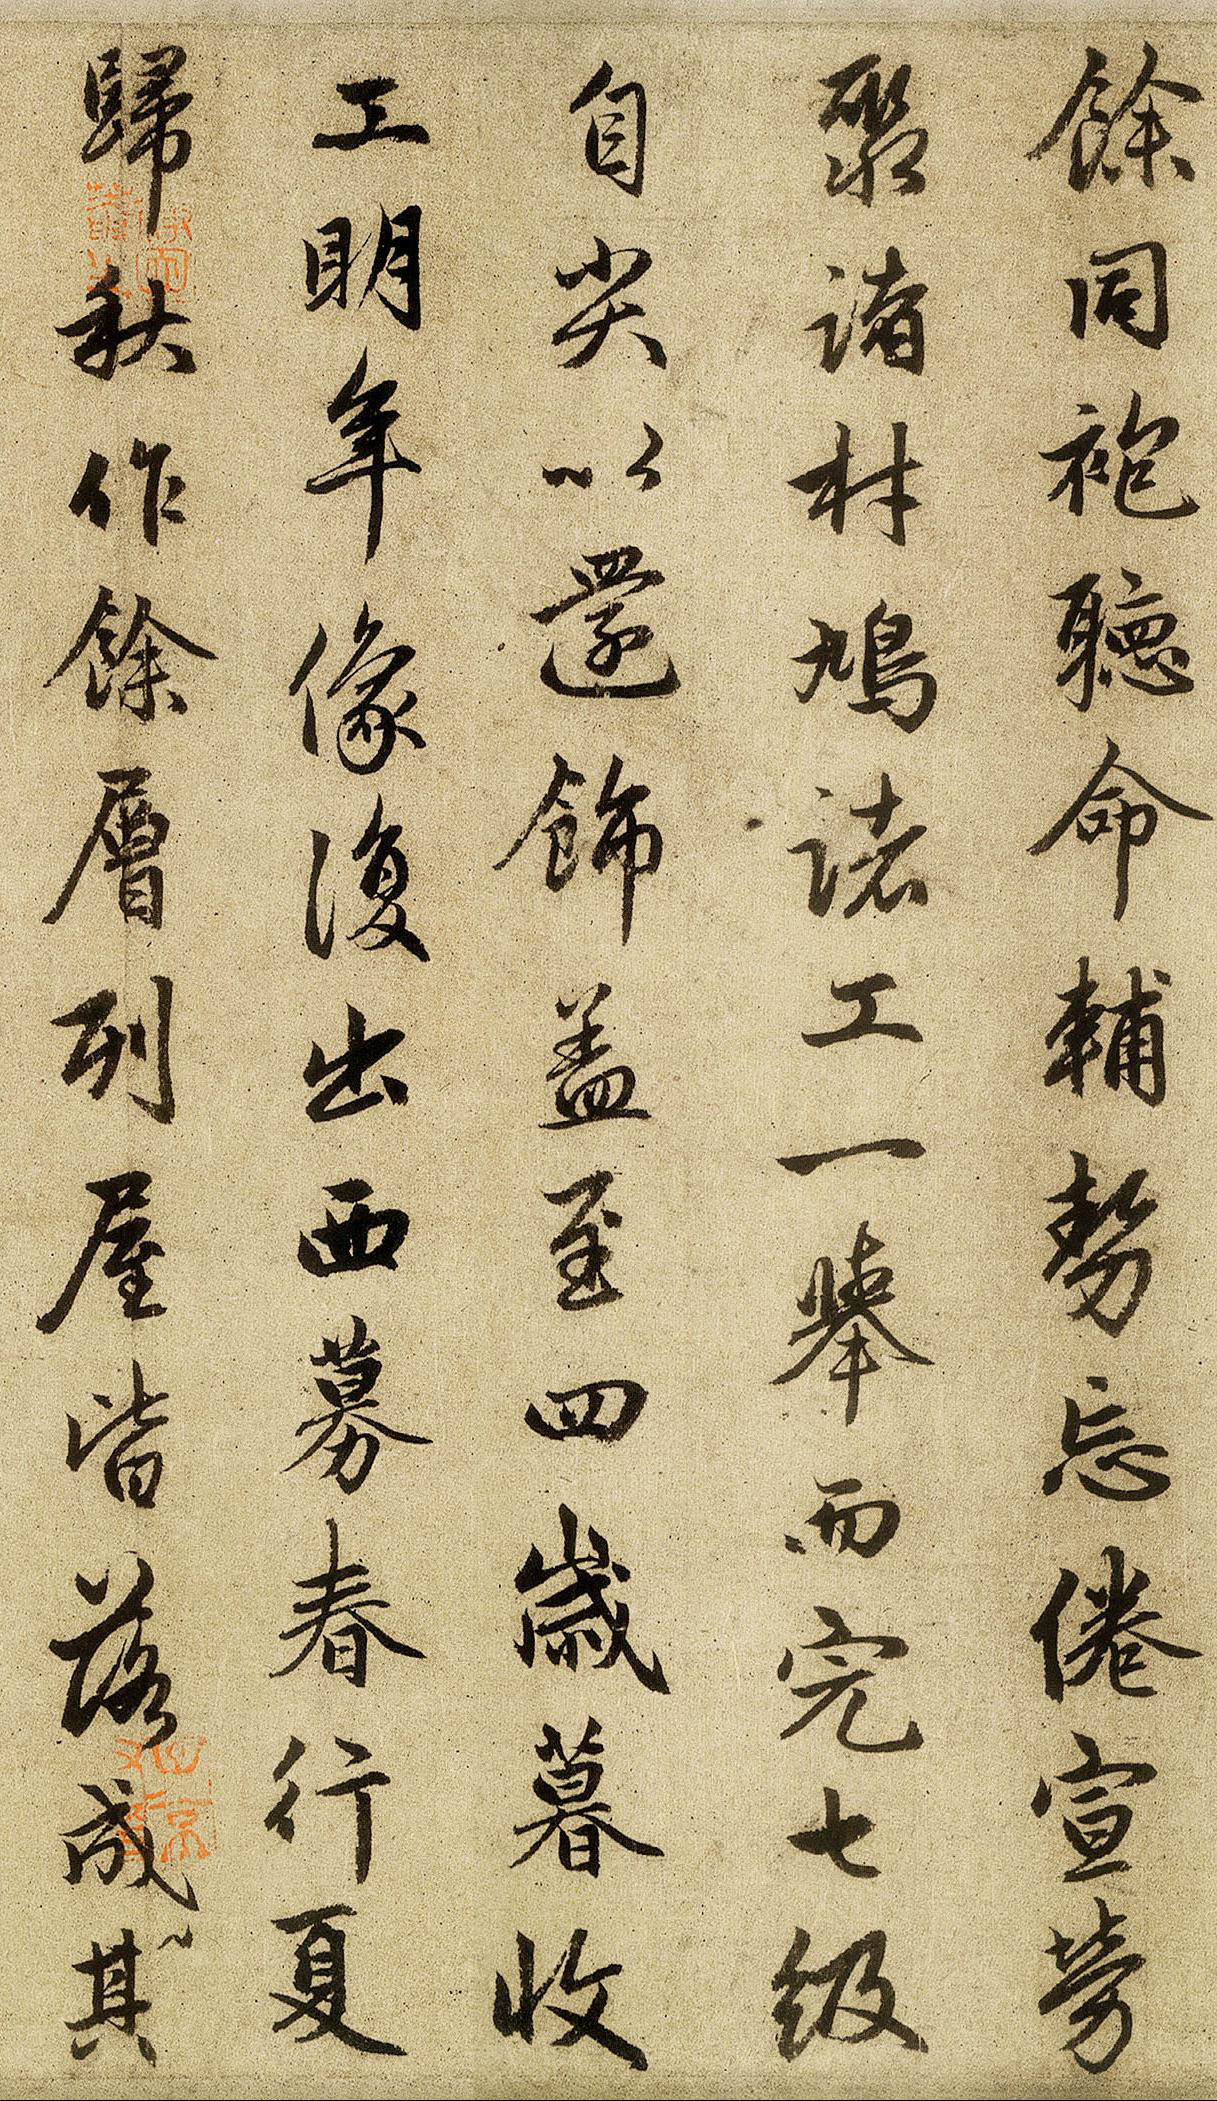 餘同袍聽命輔勢忘倦宣勞
聚諸材鳩諸工一舉而完七級
自尖以還飾蓋至四歲暮收
工明年像復出西募春行夏
歸秋作餘層列屋皆落成其